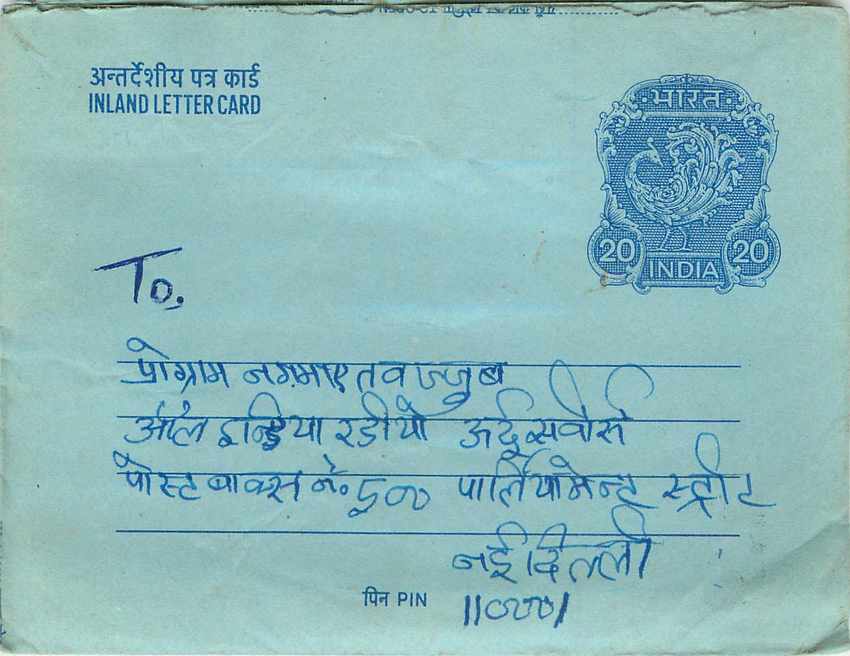 अन्तर्देशीय पत्र कार्ड
INLAND LETTER CARD
भारत
20 20
INDIA
To,
प्रोग्राम नगमाए तवज्जुब
ऑल इन्डिया रडीयो ऊर्दू सर्वीस
पोस्ट बाक्स नं० ५०० पार्लियामेन्ट स्ट्रीट
नई दिल्ली
पिन PIN
110001